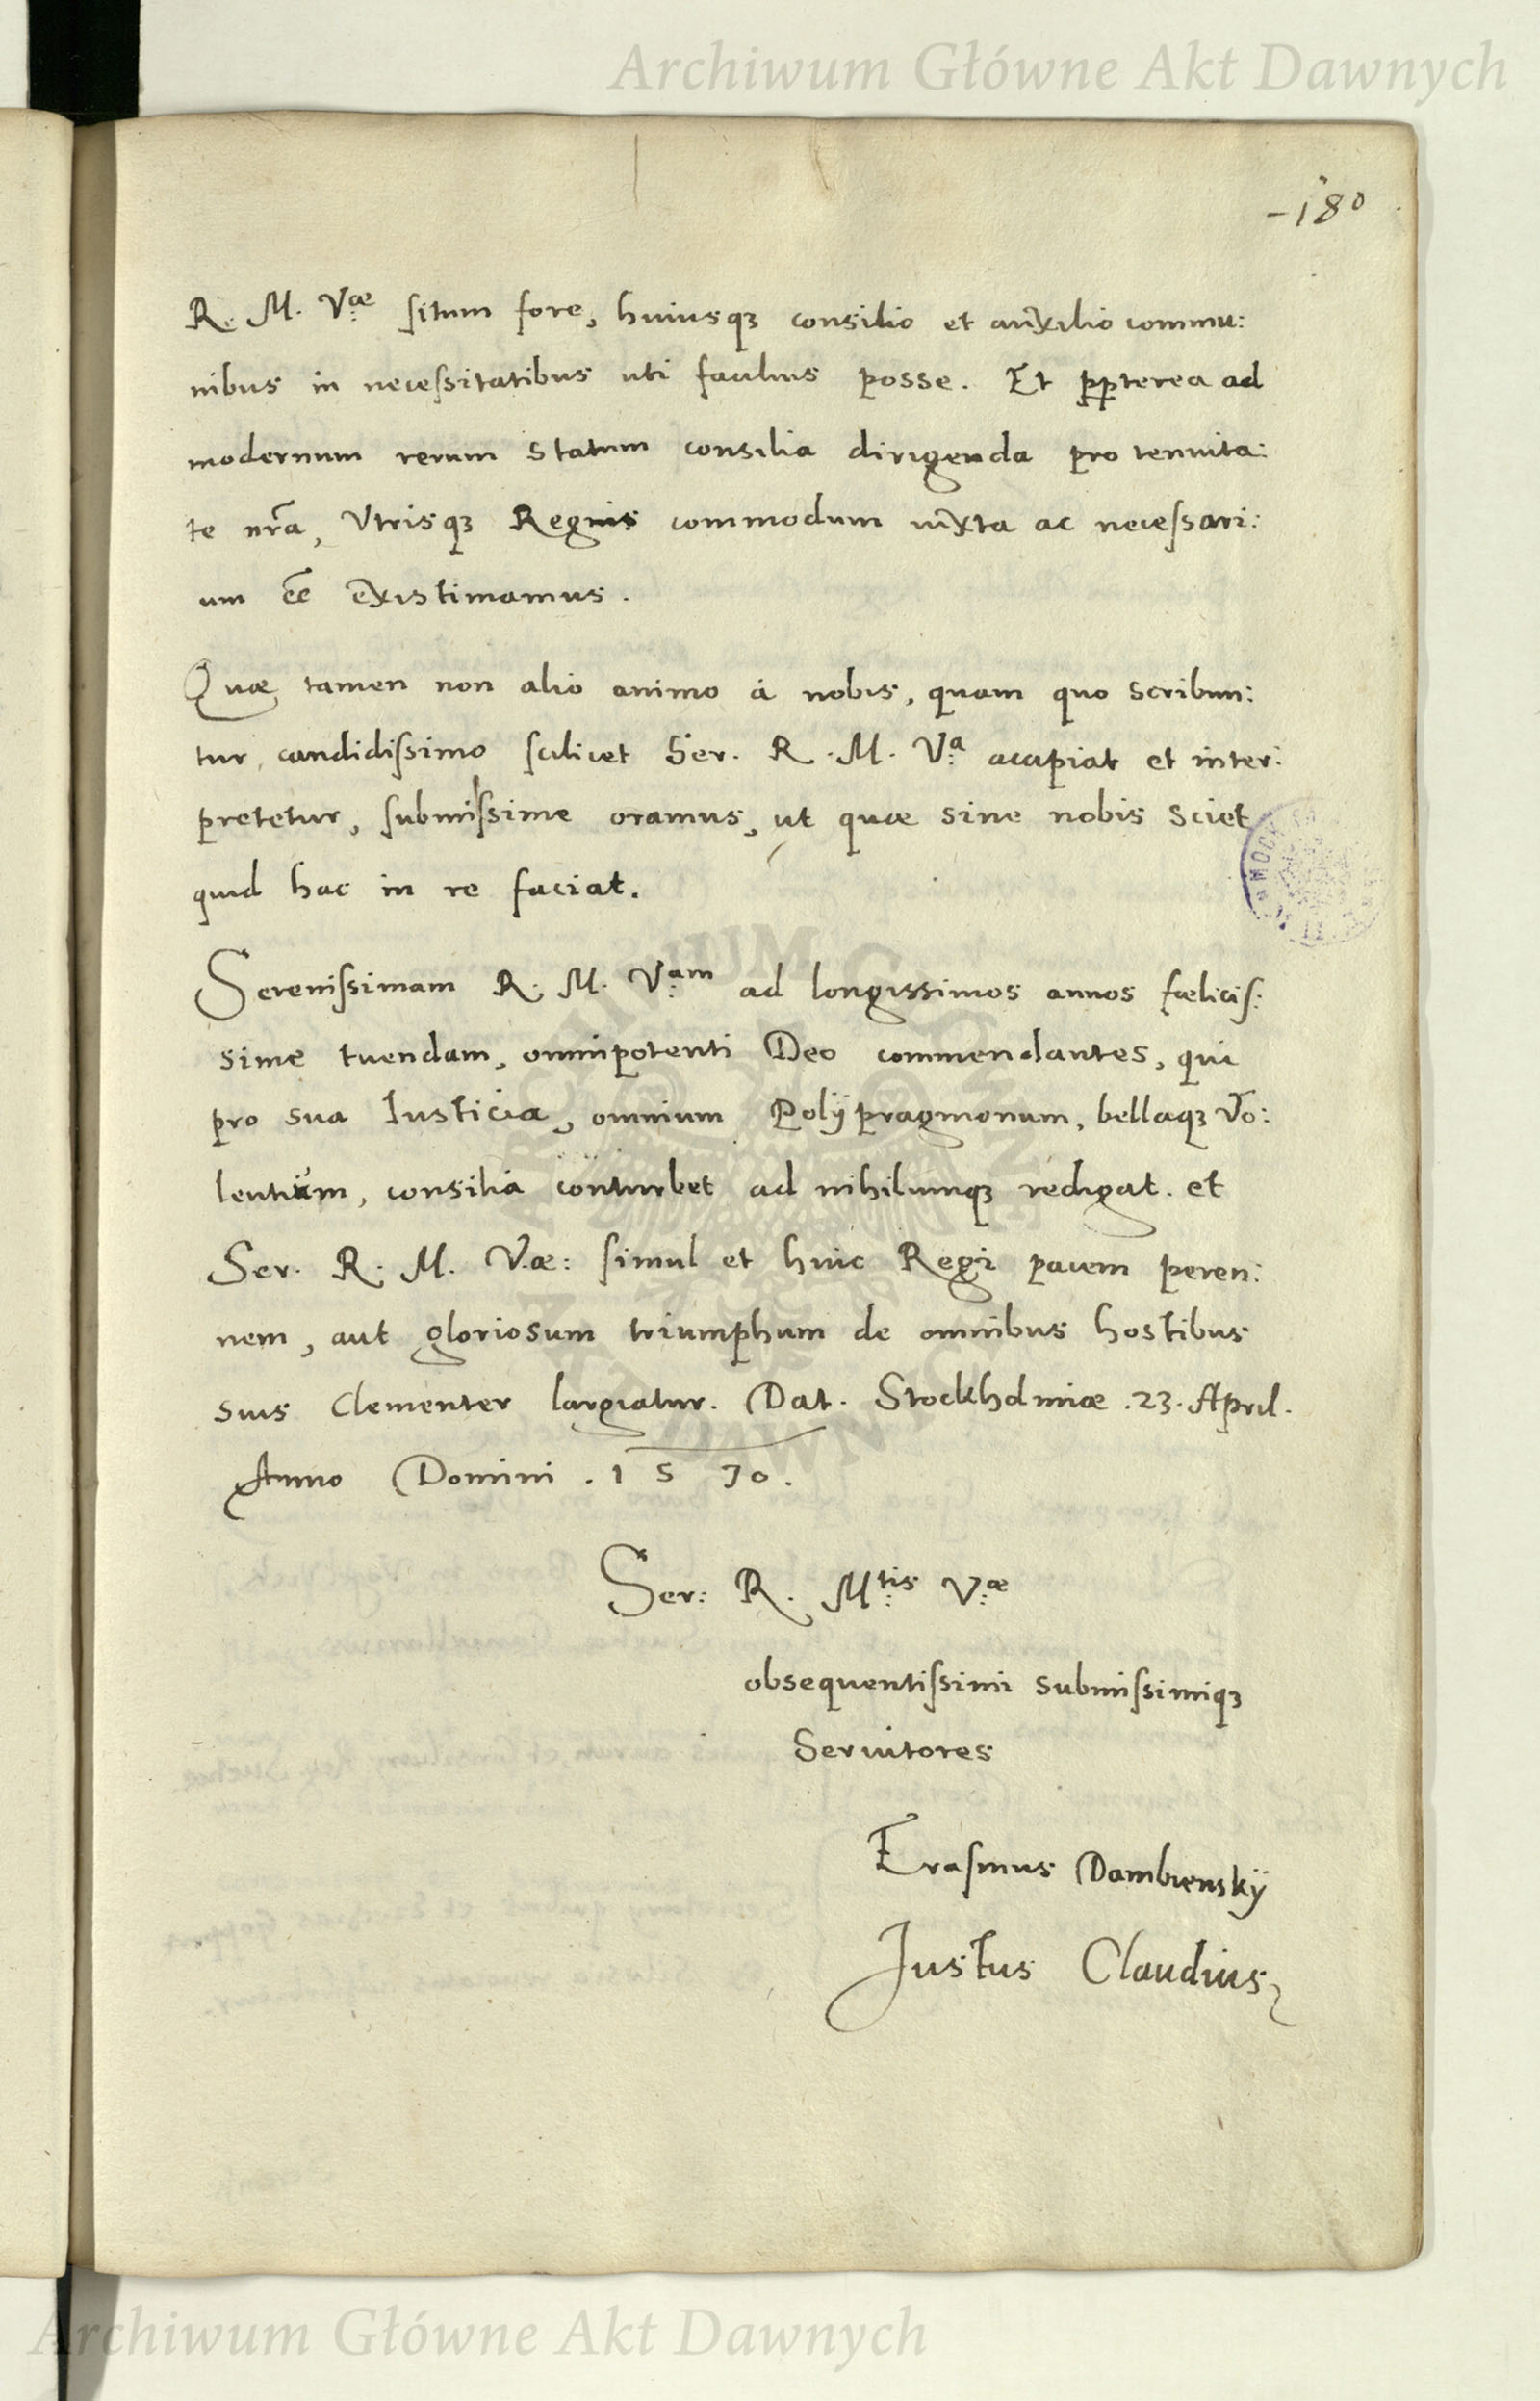 Archiwum Główne Akt Dawnych
-180
R. M. Vᵃᵉ situm fore, huiusqꝫ consilio et auxilio commu:
nibus in necessitatibus uti facilius posse. Et ꝓpterea ad
modernum rerum statum consilia dirigenda pro tenuita:
te nr̃a, Vtrisqꝫ Regnis commodum iuxta ac necessari:
um ee͂ existimamus.
Quæ tamen non alio animo á nobis, quam quo scribun:
tur, candidissimo scilicet Ser. R. M. V.ᵃ accipiat et inter:
pretetur, submissime oramus, ut quæ sine nobis sciet
quid hac in re faciat.
Serenissimam R. M. V.ᵃᵐ ad longissimos annos fœlicis:
sime tuendam, omnipotenti Deo commendantes, qui
pro sua Iusticia, omnium Polÿpragmonum, bellaqꝫ Vo:
lentium, consilia conturbet ad nihilumqꝫ redigat. et
Ser. R. M. V.æ: simul et huic Regi pacem peren:
nem, aut gloriosum triumphum de omnibus hostibus
suis Clementer largiatur. Dat. Stockholmiæ .23. April.
Anno Domini .1570.
Ser: R. M.ᵗⁱˢ V.ᵃᵉ
obsequentissimi submissimiqꝫ
Seruitores
Erasmus Dambienskÿ
Justus Claudius
Archiwum Główne Akt Dawnych